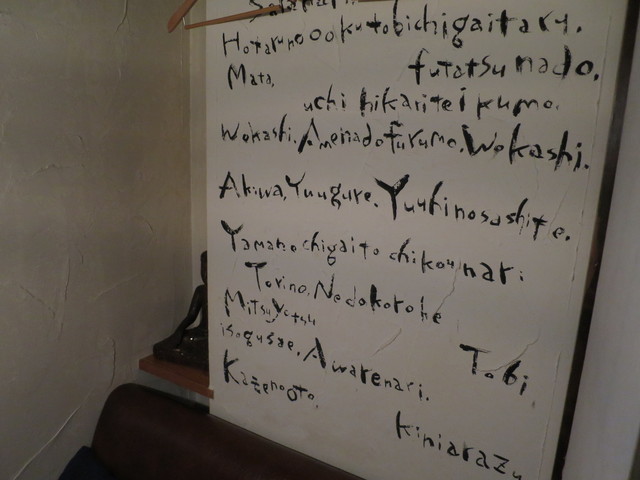 Hotaruno Ookutobichigaitaru.
Mata, futatsu nado.
uchi hikariteikumo.
Wokashi. Amenadofurumo. Wokashi.
Akiwa, Yuugure. Yuuhinosashite.
Yamanochigaito chikounari
Torino, Nedokorohe
Mitsuyotsu
isogusae, Awarenari. Tobi
Kazenooto, kiniarazu